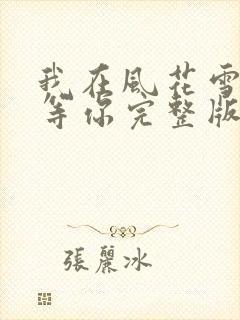 我在風花雪
等你完整版
張麗冰